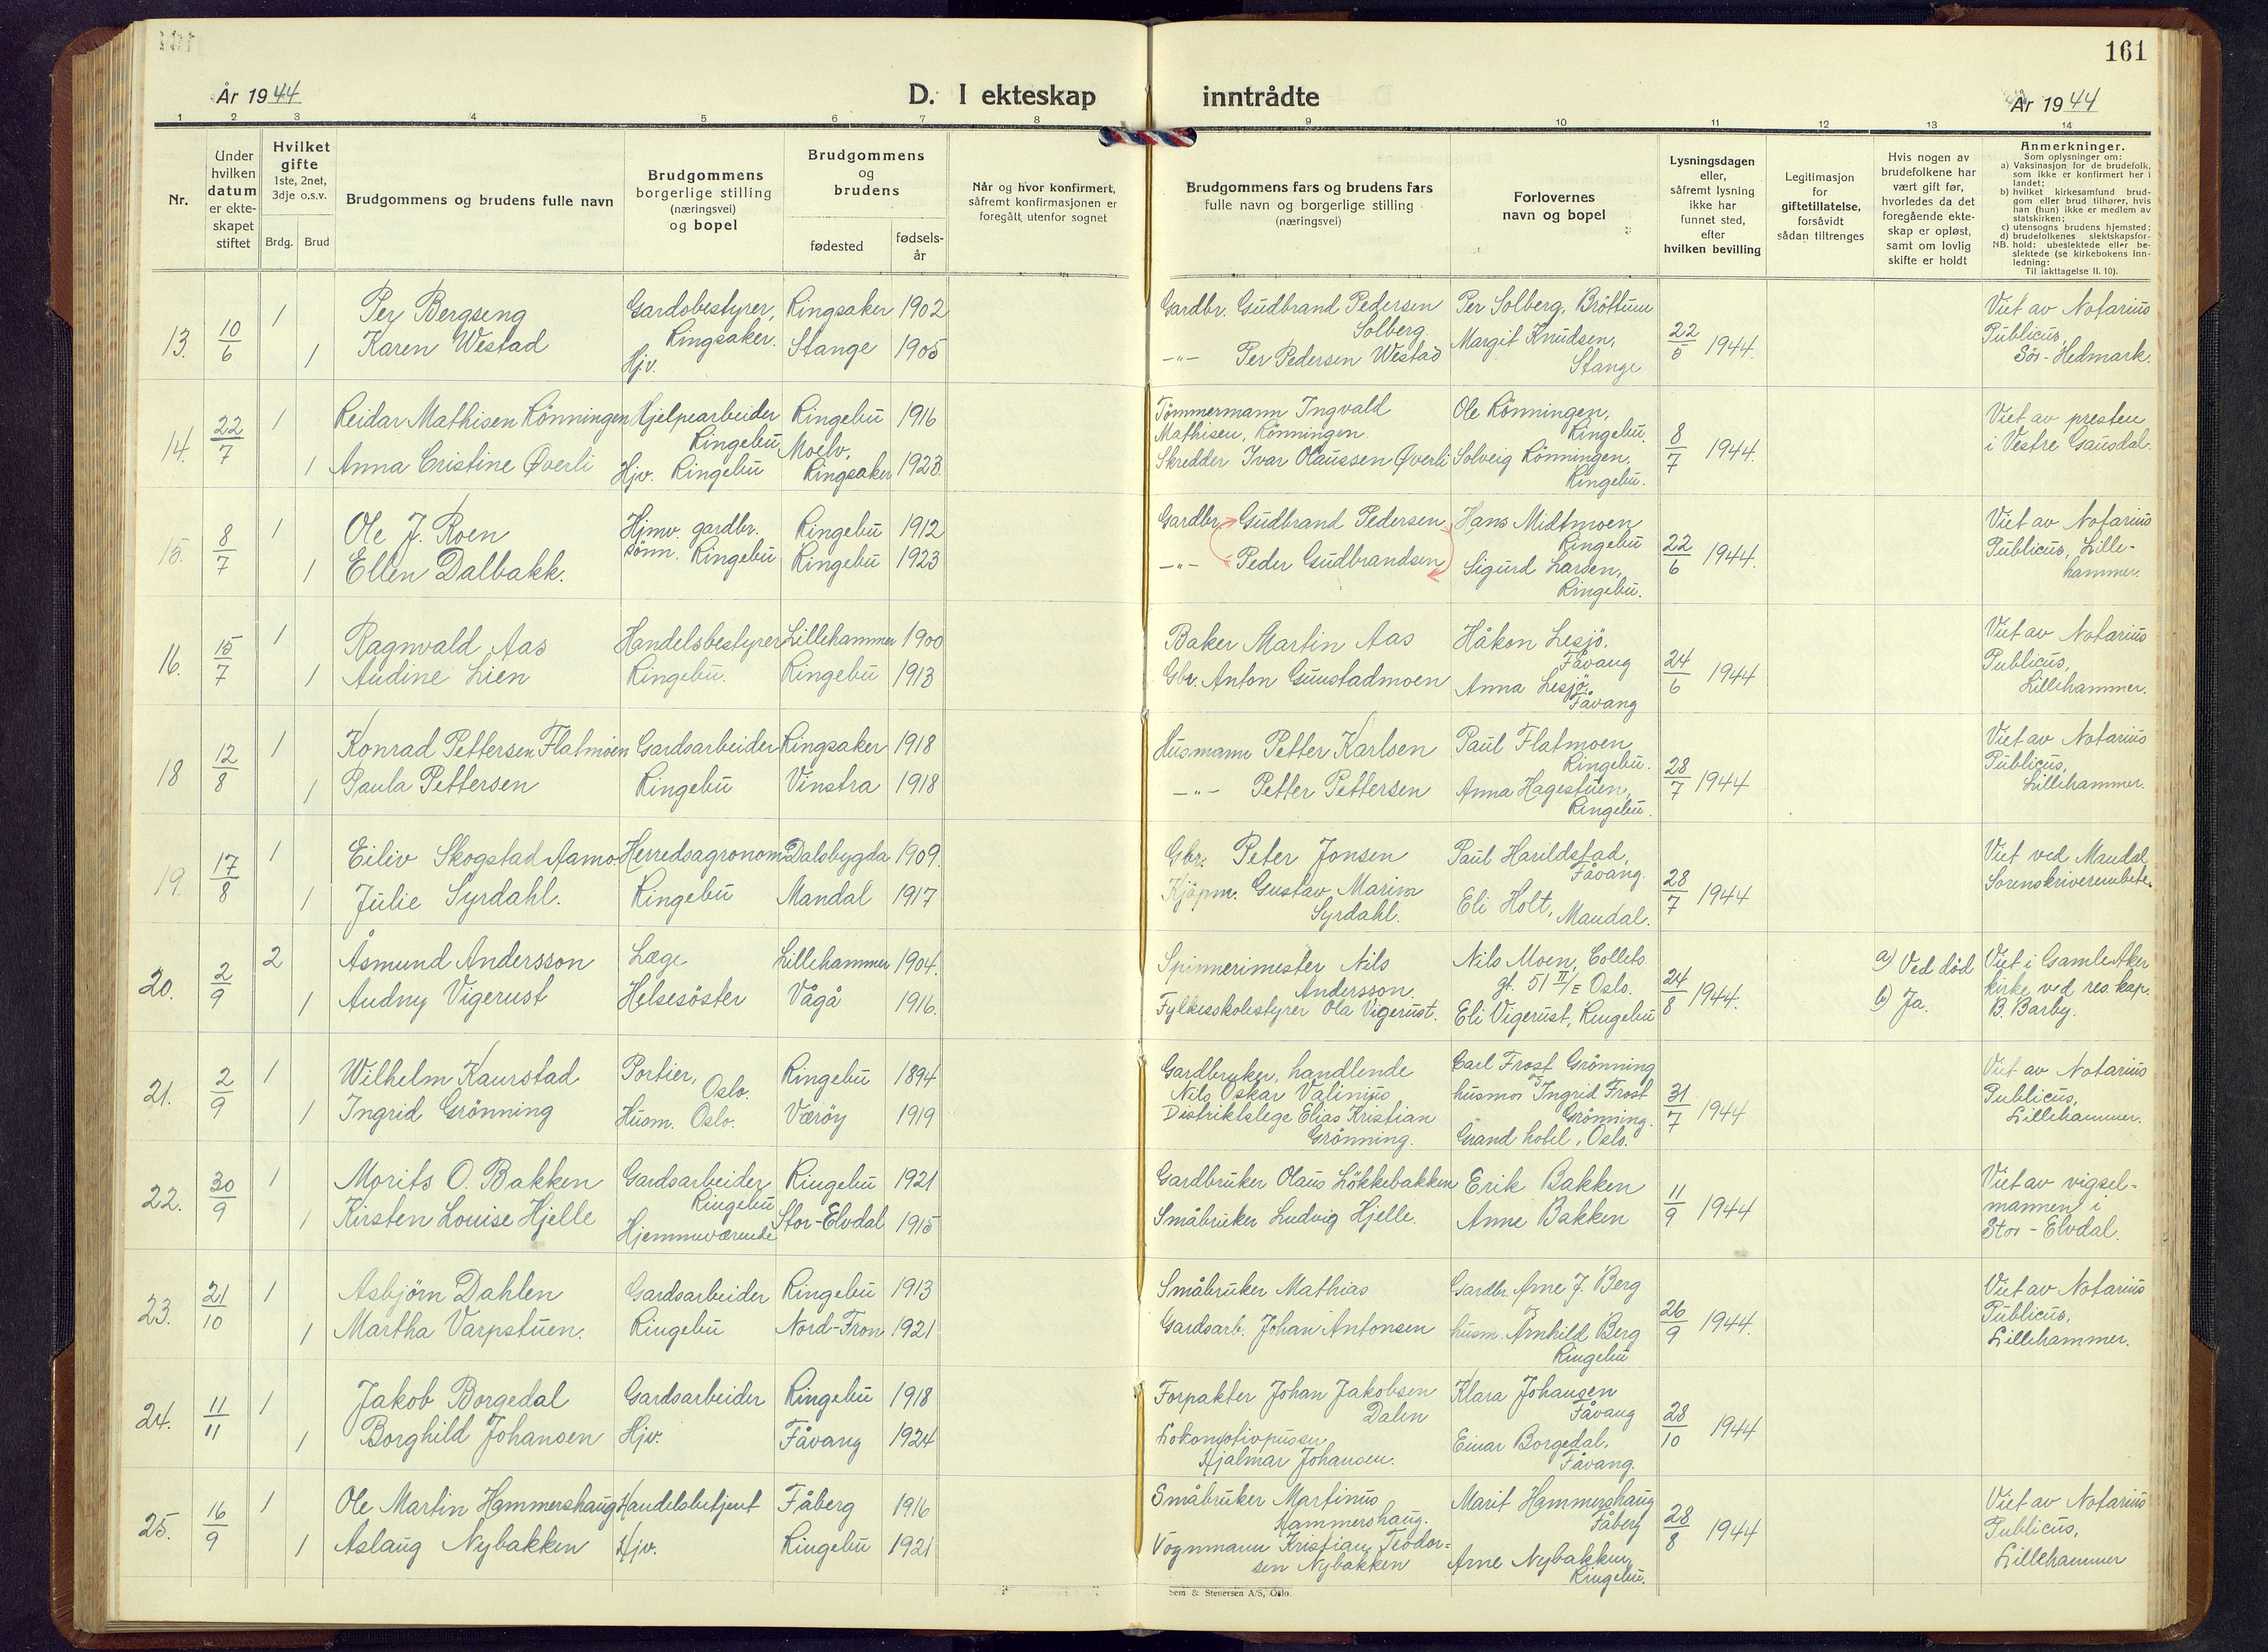 161
År 1944
D. I ekteskap inntrådte
År 1944
1 2 3 4 5 6 7 8 9 10 11 12 13 14
Nr.
Under hvilken datum er ekte-skapet stiftet
Hvilket gifte
1ste, 2net, 3dje o.s.v.
Brdg. Brud
Brudgommens og brudens fulle navn
Brudgommens borgerlige stilling (næringsvei) og bopel
Brudgommens og brudens
fødested
fødsels-år
Når og hvor konfirmert, såfremt konfirmasjonen er foregått utenfor sognet
Brudgommens fars og brudens fars fulle navn og borgerlige stilling (næringsvei)
Forlovernes navn og bopel
Lysningsdagen eller, såfremt lysning ikke har funnet sted, efter hvilken bevilling
Legitimasjon for giftetillatelse, forsåvidt sådan tiltrenges
Hvis nogen av brudefolkene har vært gift før, hvorledes da det foregående ekte-skap er opløst, samt om lovlig skifte er holdt
Anmerkninger.
Som oplysninger om:
a) Vaksinasjon for de brudefolk, som ikke er konfirmert her i landet;
b) hvilket kirkesamfund brud-gom eller brud tilhører, hvis han (hun) ikke er medlem av statskirken;
c) utensogns brudens hjemsted;
d) brudefolkenes slektskapsfor-hold: ubeslektede eller be-slektede (se kirkebokens inn-ledning:
NB.
Til iakttagelse II. 10).
13. 10/6 1 Per Bergseng Gardsbestyrer, Ringsaker. Ringsaker 1902 Gardbr. Gudbrand Pedersen Solberg. Per Solberg, Bröttum 22/5 1944. Viet av Notarius Publicus, Sör-Hedmark.
1 Karen Westad Hjv. Stange 1905 -"- Per Pedersen Westad Margit Knudsen, Stange
14. 22/7 1 Reidar Mathisen Rönningen Hjelpearbeider Ringebu Ringebu 1916 Tömmermann Ingvald Mathisen, Rönningen. Ole Rönningen, Ringebu. 8/7 1944. Viet av presten i Vestre Gausdal.
1 Anna Cristine Øverli Hjv. Ringebu Moelv, Ringsaker 1923. Skredder Ivar Olaussen Øverli Solveig Rönningen, Ringebu.
15. 8/7 1 Ole J. Roen Hjmv. gardbr. sönn, Ringebu Ringebu 1912 Gardbr. Gudbrand Pedersen Hans Midtmoen Ringebu 22/6 1944. Viet av Notarius Publicus, Lille-hammer.
1 Ellen Dalbakk. Ringebu 1923 -"- Peder Gudbrandsen Sigurd Larsen, Ringebu.
16. 15/7 1 Ragnvald Aas Handelsbestyrer Ringebu. Lillehammer 1900 Baker Martin Aas Håkon Lesjö, Fåvang 24/6 1944 Viet av Notarius Publicus, Lillehammer.
1 Audine Lien Ringebu 1913 Gbr. Anton Gunstadmoen Anna Lesjö, Fåvang
18 12/8 1 Konrad Pettersen Flatmoen Gardsarbeider Ringebu Ringsaker 1918 Husmann Petter Karlsen Paul Flatmoen Ringebu. 28/7 1944 Viet av Notarius Publicus, Lillehammer.
1 Paula Pettersen Vinstra 1918 -"- Petter Pettersen Anna Hagestuen, Ringebu.
19. 17/8 1 Eiliv Skogstad Aamo Herredsagronom Ringebu Dalsbygda 1909. Gbr. Peter Jonsen Paul Harildstad, Fåvang. 28/7 1944 Viet ved Mandal Sorenskriverembete.
1 Julie Syrdahl. Mandal 1917 Kjöpm. Gustav Marim Syrdahl. Eli Holt, Mandal.
20. 2/9 2 Åsmund Andersson Læge Lillehammer 1904. Spinnerimester Nils Andersson. Nils Moen, Collets gt. 51 II/E Oslo. 24/8 1944. a) Ved död b) Ja. Viet i Gamle Aker kirke ved res. kap. B. Barby.
1 Audny Vigerust Helsesöster Vågå 1916. Fylkesskolestyrer Ola Vigerust. Eli Vigerust, Ringebu
21. 2/9 1 Wilhelm Kaurstad Portier, Oslo. Ringebu 1894 Gardbruker, handlende Nils Oskar Valinius Carl Frost Grönning og husmor Ingrid Frost Grönning. Grand hotel, Oslo. 31/7 1944 Viet av Notarius Publicus, Lillehammer.
1 Ingrid Grönning Husm. Oslo. Væröy 1919 Distriktslege Elias Kristian Grönning.
22. 30/9 1 Morits O. Bakken Gardsarbeider Ringebu Ringebu 1921 Gardbruker Olaus Lökkebakken Erik Bakken 11/9 1944 Viet av vigsel-mannen i Stor-Elvdal.
1 Kirsten Louise Hjelle Hjemmeværende Stor-Elvdal 1915 Småbruker Ludvig Hjelle. Anne Bakken
23. 21/10 1 Asbjörn Dahlen Gardsarbeider Ringebu Ringebu 1913 Småbruker Mathias Gardbr. Arne J. Berg og 26/9 1944. Viet av Notarius Publicus, Lillehammer.
1 Martha Varpstuen. Nord-Fron 1921 Gardsarb. Johan Antonsen husm. Arnhild Berg Ringebu
24. 11/11 1 Jakob Borgedal Gardsarbeider Ringebu 1918 Forpakter Johan Jakobsen Dalen Klara Johansen Fåvang 28/10 1944
1 Borghild Johansen Hjv. Fåvang 1924 Lokomotivpusser Hjalmar Johansen. Einar Borgedal, Fåvang.
25. 16/9 1 Ole Martin Hammershaug Handelsbetjent Fåberg 1916 Småbruker Martinus Hammershaug. Marit Hammershaug Fåberg 28/8 1944 Viet av Notarius Publicus, Lillehammer
1 Aslaug Nybakken Hjv. Ringebu 1921 Vognmann Kristian Teodor=sen Nybakken Arne Nybakken, Ringebu.
Sem & Stenersen A/S, Oslo.